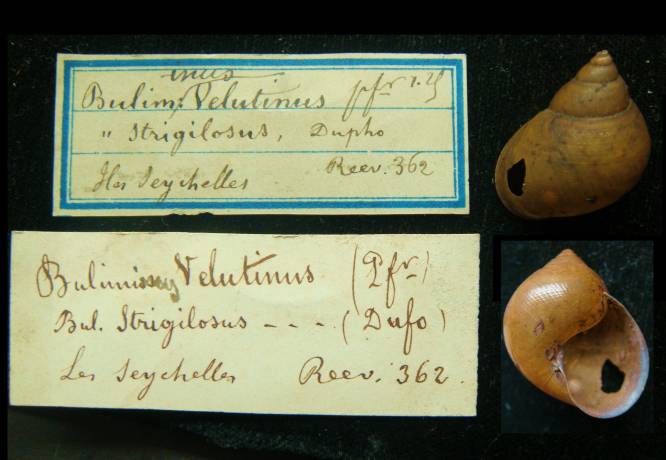 inus
Bulim: Velutinus pfr
" Strigilosus, Dupho
Iles Seychelles Reev. 362
Velutinus (Pfr)
Bul. Strigilosus - - - (Dufo)
Les Seychelles Reev. 362.